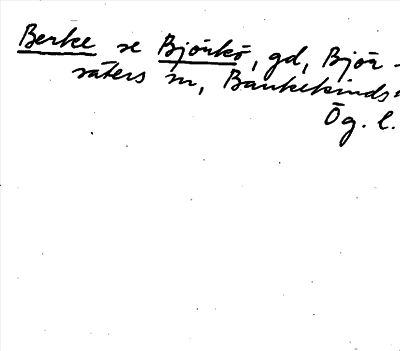 Berke se Björkö, gd, Björ-
säters sn, Bankekinds
Ög. l.